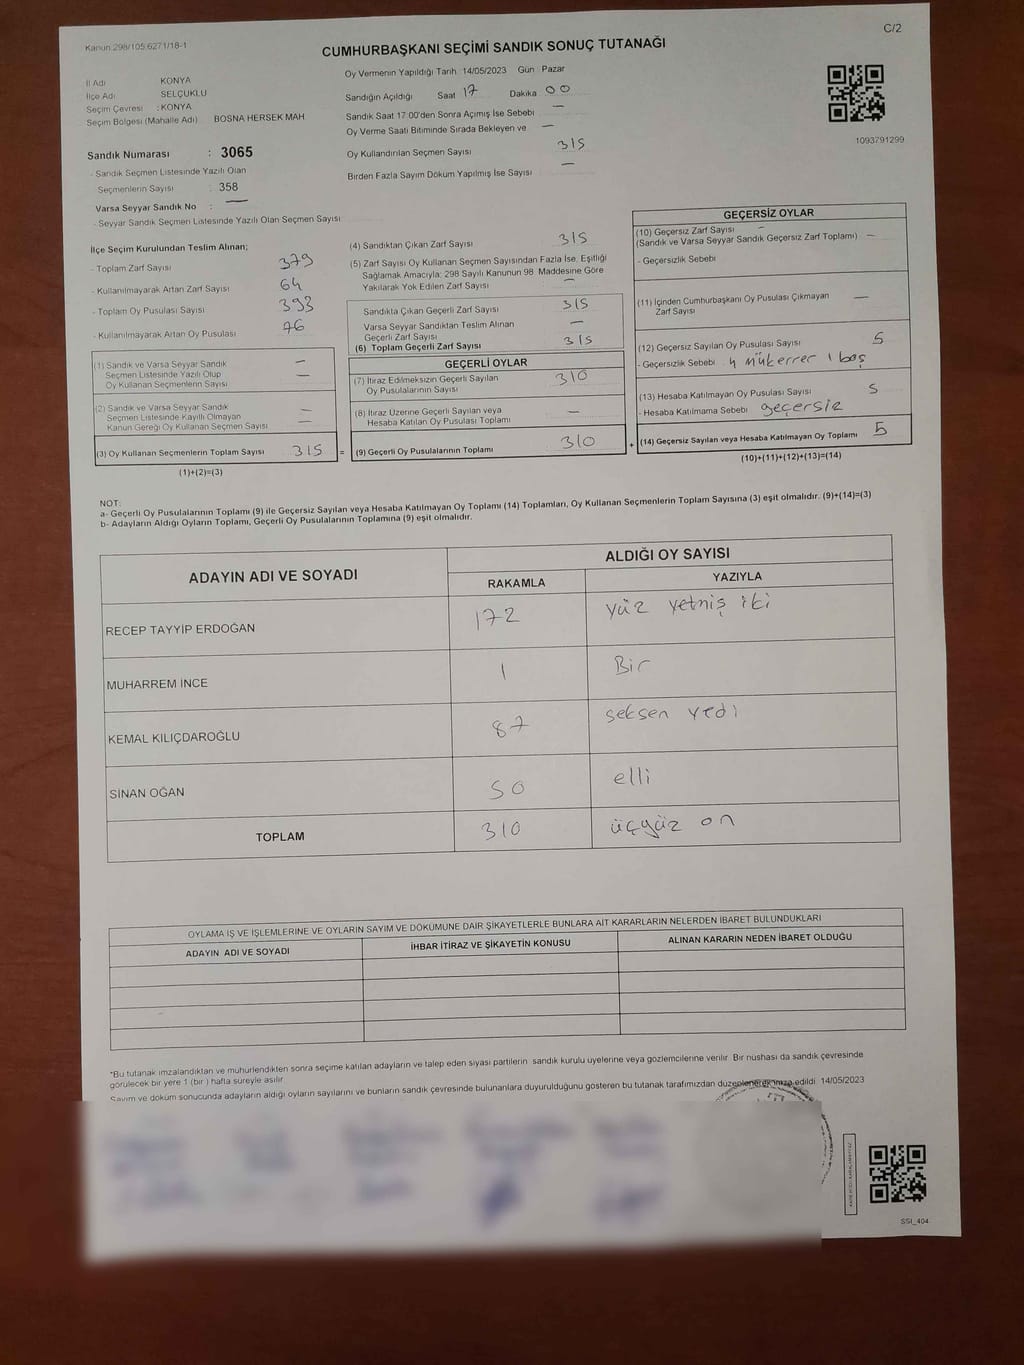 Kanun 298/105.6271/18-1
C/2
CUMHURBAŞKANI SEÇİMİ SANDIK SONUÇ TUTANAĞI
İl Adı KONYA
İlçe Adı SELÇUKLU
Seçim Çevresi : KONYA
Seçim Bölgesi (Mahalle Adı) BOSNA HERSEK MAH
Sandık Numarası : 3065
- Sandık Seçmen Listesinde Yazılı Olan
Seçmenlerin Sayısı : 358
Varsa Seyyar Sandık No : —
- Seyyar Sandık Seçmen Listesinde Yazılı Olan Seçmen Sayısı
Oy Vermenin Yapıldığı Tarih 14/05/2023 Gün Pazar
Sandığın Açıldığı Saat 17 Dakika 00
Sandık Saat 17:00'den Sonra Açımış İse Sebebi —
Oy Verme Saati Bitiminde Sırada Bekleyen ve —
Oy Kullandırılan Seçmen Sayısı 315
Birden Fazla Sayım Döküm Yapılmış İse Sayısı —
1093791299
İlçe Seçim Kurulundan Teslim Alınan;
- Toplam Zarf Sayısı 379
- Kullanılmayarak Artan Zarf Sayısı 64
- Toplam Oy Pusulası Sayısı 393
- Kullanılmayarak Artan Oy Pusulası 76
(1) Sandık ve Varsa Seyyar Sandık —
Seçmen Listesinde Yazılı Olup —
Oy Kullanan Seçmenlerin Sayısı
(2) Sandık ve Varsa Seyyar Sandık —
Seçmen Listesinde Kayıtlı Olmayan —
Kanun Gereği Oy Kullanan Seçmen Sayısı
(3) Oy Kullanan Seçmenlerin Toplam Sayısı 315 =
(1)+(2)=(3)
(4) Sandıktan Çıkan Zarf Sayısı 315
(5) Zarf Sayısı Oy Kullanan Seçmen Sayısından Fazla İse, Eşitliği
Sağlamak Amacıyla; 298 Sayılı Kanunun 98. Maddesine Göre
Yakılarak Yok Edilen Zarf Sayısı —
Sandıkta Çıkan Geçerli Zarf Sayısı 315
Varsa Seyyar Sandıktan Teslim Alınan —
Geçerli Zarf Sayısı
(6) Toplam Geçerli Zarf Sayısı 315
GEÇERLİ OYLAR
(7) İtiraz Edilmeksizin Geçerli Sayılan 310
Oy Pusulalarının Sayısı
(8) İtiraz Üzerine Geçerli Sayılan veya —
Hesaba Katılan Oy Pusulası Toplamı
(9) Geçerli Oy Pusulalarının Toplamı 310 +
GEÇERSİZ OYLAR
(10) Geçersiz Zarf Sayısı —
(Sandık ve Varsa Seyyar Sandık Geçersiz Zarf Toplamı) —
- Geçersizlik Sebebi
(11) İçinden Cumhurbaşkanı Oy Pusulası Çıkmayan —
Zarf Sayısı
(12) Geçersiz Sayılan Oy Pusulası Sayısı 5
- Geçersizlik Sebebi 4 mükerrer 1 boş
(13) Hesaba Katılmayan Oy Pusulası Sayısı 5
- Hesaba Katılmama Sebebi geçersiz
(14) Geçersiz Sayılan veya Hesaba Katılmayan Oy Toplamı 5
(10)+(11)+(12)+(13)=(14)
NOT:
a- Geçerli Oy Pusulalarının Toplamı (9) ile Geçersiz Sayılan veya Hesaba Katılmayan Oy Toplamı (14) Toplamları, Oy Kullanan Seçmenlerin Toplam Sayısına (3) eşit olmalıdır. (9)+(14)=(3)
b- Adayların Aldığı Oyların Toplamı, Geçerli Oy Pusulalarının Toplamına (9) eşit olmalıdır.
ADAYIN ADI VE SOYADI
ALDIĞI OY SAYISI
RAKAMLA YAZIYLA
RECEP TAYYİP ERDOĞAN 172 yüz yetmiş iki
MUHARREM İNCE 1 Bir
KEMAL KILIÇDAROĞLU 87 seksen yedi
SİNAN OĞAN 50 elli
TOPLAM 310 üçyüz on
OYLAMA İŞ VE İŞLEMLERİNE VE OYLARIN SAYIM VE DÖKÜMÜNE DAİR ŞİKAYETLERLE BUNLARA AİT KARARLARIN NELERDEN İBARET BULUNDUKLARI
ADAYIN ADI VE SOYADI İHBAR İTİRAZ VE ŞİKAYETİN KONUSU ALINAN KARARIN NEDEN İBARET OLDUĞU
*Bu tutanak imzalandıktan ve mühürlendikten sonra seçime katılan adayların ve talep eden siyasi partilerin sandık kurulu üyelerine veya gözlemcilerine verilir. Bir nüshası da sandık çevresinde
görülecek bir yere 1 (bir) hafta süreyle asılır.
Sayım ve döküm sonucunda adayların aldığı oyların sayılarını ve bunların sandık çevresinde bulunanlara duyurulduğunu gösteren bu tutanak tarafımızdan düzenlenerek imza edildi 14/05/2023
SSİ_404